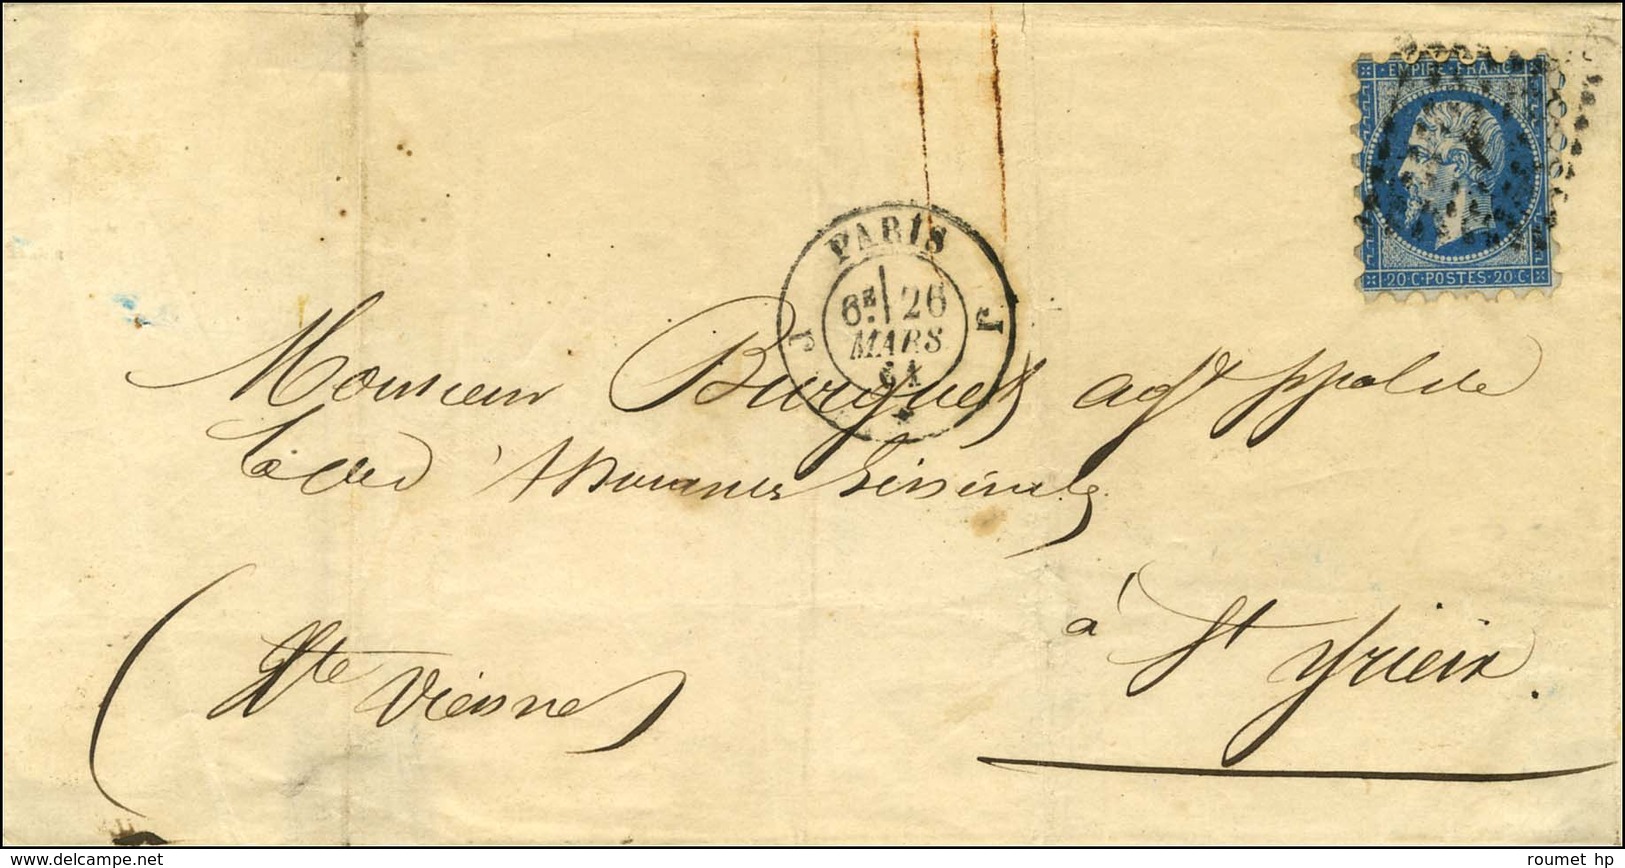 EMPIRE FRANC
20·C·POSTES·20·C
PARIS
J J
6E 26
MARS
64
Monsieur Burguet agt ppal de
la Cie d'Assurances Générales
à St Yrieix.
(Hte Vienne)
www.delcampe.net
roumet hp